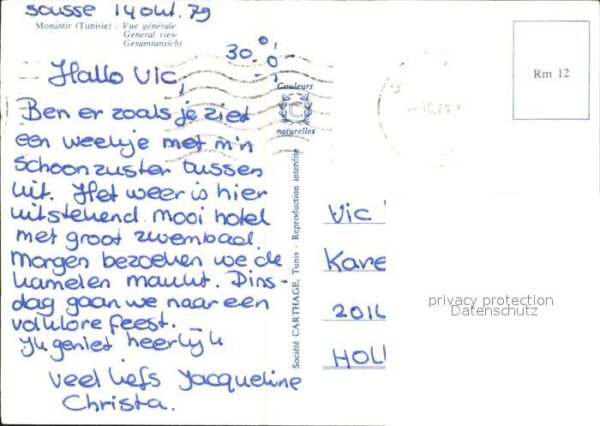 Sousse 14 okt. 79
Monastir (Tunisie) : Vue générale
General view
Gesamtansicht
30°
Hallo Vic,
Ben er zoals je ziet
een weekje met m'n
schoonzuster tussen
uit. Het weer is hier
uitstekend mooi hotel
met groot zwembad.
Morgen bezoeken we de
kamelen markt. Dins-
dag gaan we naar een
volklore feest.
Ik geniet heerlijk
veel liefs Jacqueline
Christa.
Couleurs
naturelles
Société CARTHAGE, Tunis - Reproduction interdite
Rm 12
Vic
Kare
201
HOL
privacy protection
Datenschutz